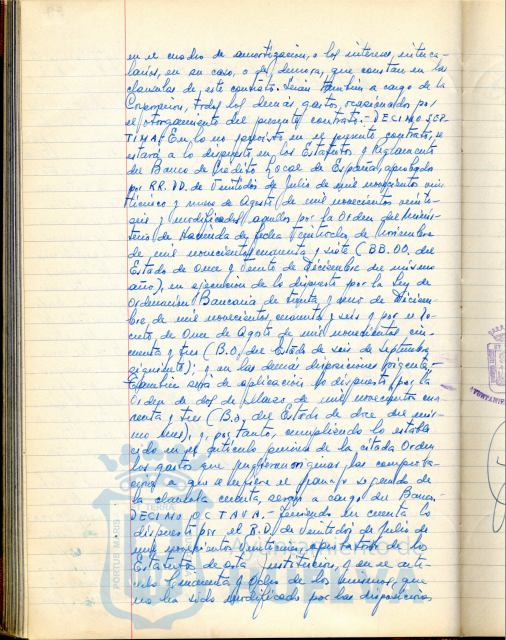 en el cuadro de amortizacion, o los intereses interca-
larios, en su caso, o de demora, que constan en las
clausulas de este contrato. Serán también a cargo de la
Corporacion, todos los demás gastos, ocasionados por
el otorgamiento del presente contrato.- DECIMO SEP
TIMA.- En lo no previsto en el presente contrato, se
estará a lo dispuesto en los Estatutos y Reglamento
del Banco de Crédito Local de España, aprobados
por RR. DD. de veintidos de Julio de mil novecientos vein
ticinco y nueve de Agosto de mil novecientos veinti-
seis y modificados aquellos por la Orden del Minis-
terio de Hacienda de fecha veintiocho de noviembre
de mil novecientos cuarenta y siete (BB.OO. del
Estado de Once y Veinte de Diciembre del mismo
año), en ejecucion de lo dispuesto por la Ley de
Ordenacion Bancaria de treinta y uno de Diciem-
bre de mil novecientos cuarenta y seis y por el De-
creto de Once de Agosto de mil novecientos cin-
cuenta y tres (B.O. del Estado de seis de Septiembre
siguiente); y en las demás disposiciones vigentes.-
También será de aplicación lo dispuesto por la
Orden de dos de Marzo de mil novecientos cua
renta y tres (B.O. del Estado de doce del mis-
mo mes), y, por tanto, cumpliendo lo estable
cido en el artículo primero de la citada Orden
los gastos que pudieran originar las comproba-
ciones a que se refiere el parrafo segundo de
la clausula cuarta, serán a cargo del Banco.
DECIMO OCTAVA.- Teniendo en cuenta lo
dispuesto por el R.D. de veintidos de Julio de
mil novecientos veinticinco, aprobatorio de los
Estatutos de esta institucion, y en el arti-
culo Cincuenta y Ocho de los mismos, que
no ha sido modificado por las disposiciones
PORTUS MAGIS
TERRA
Ayuntamiento de